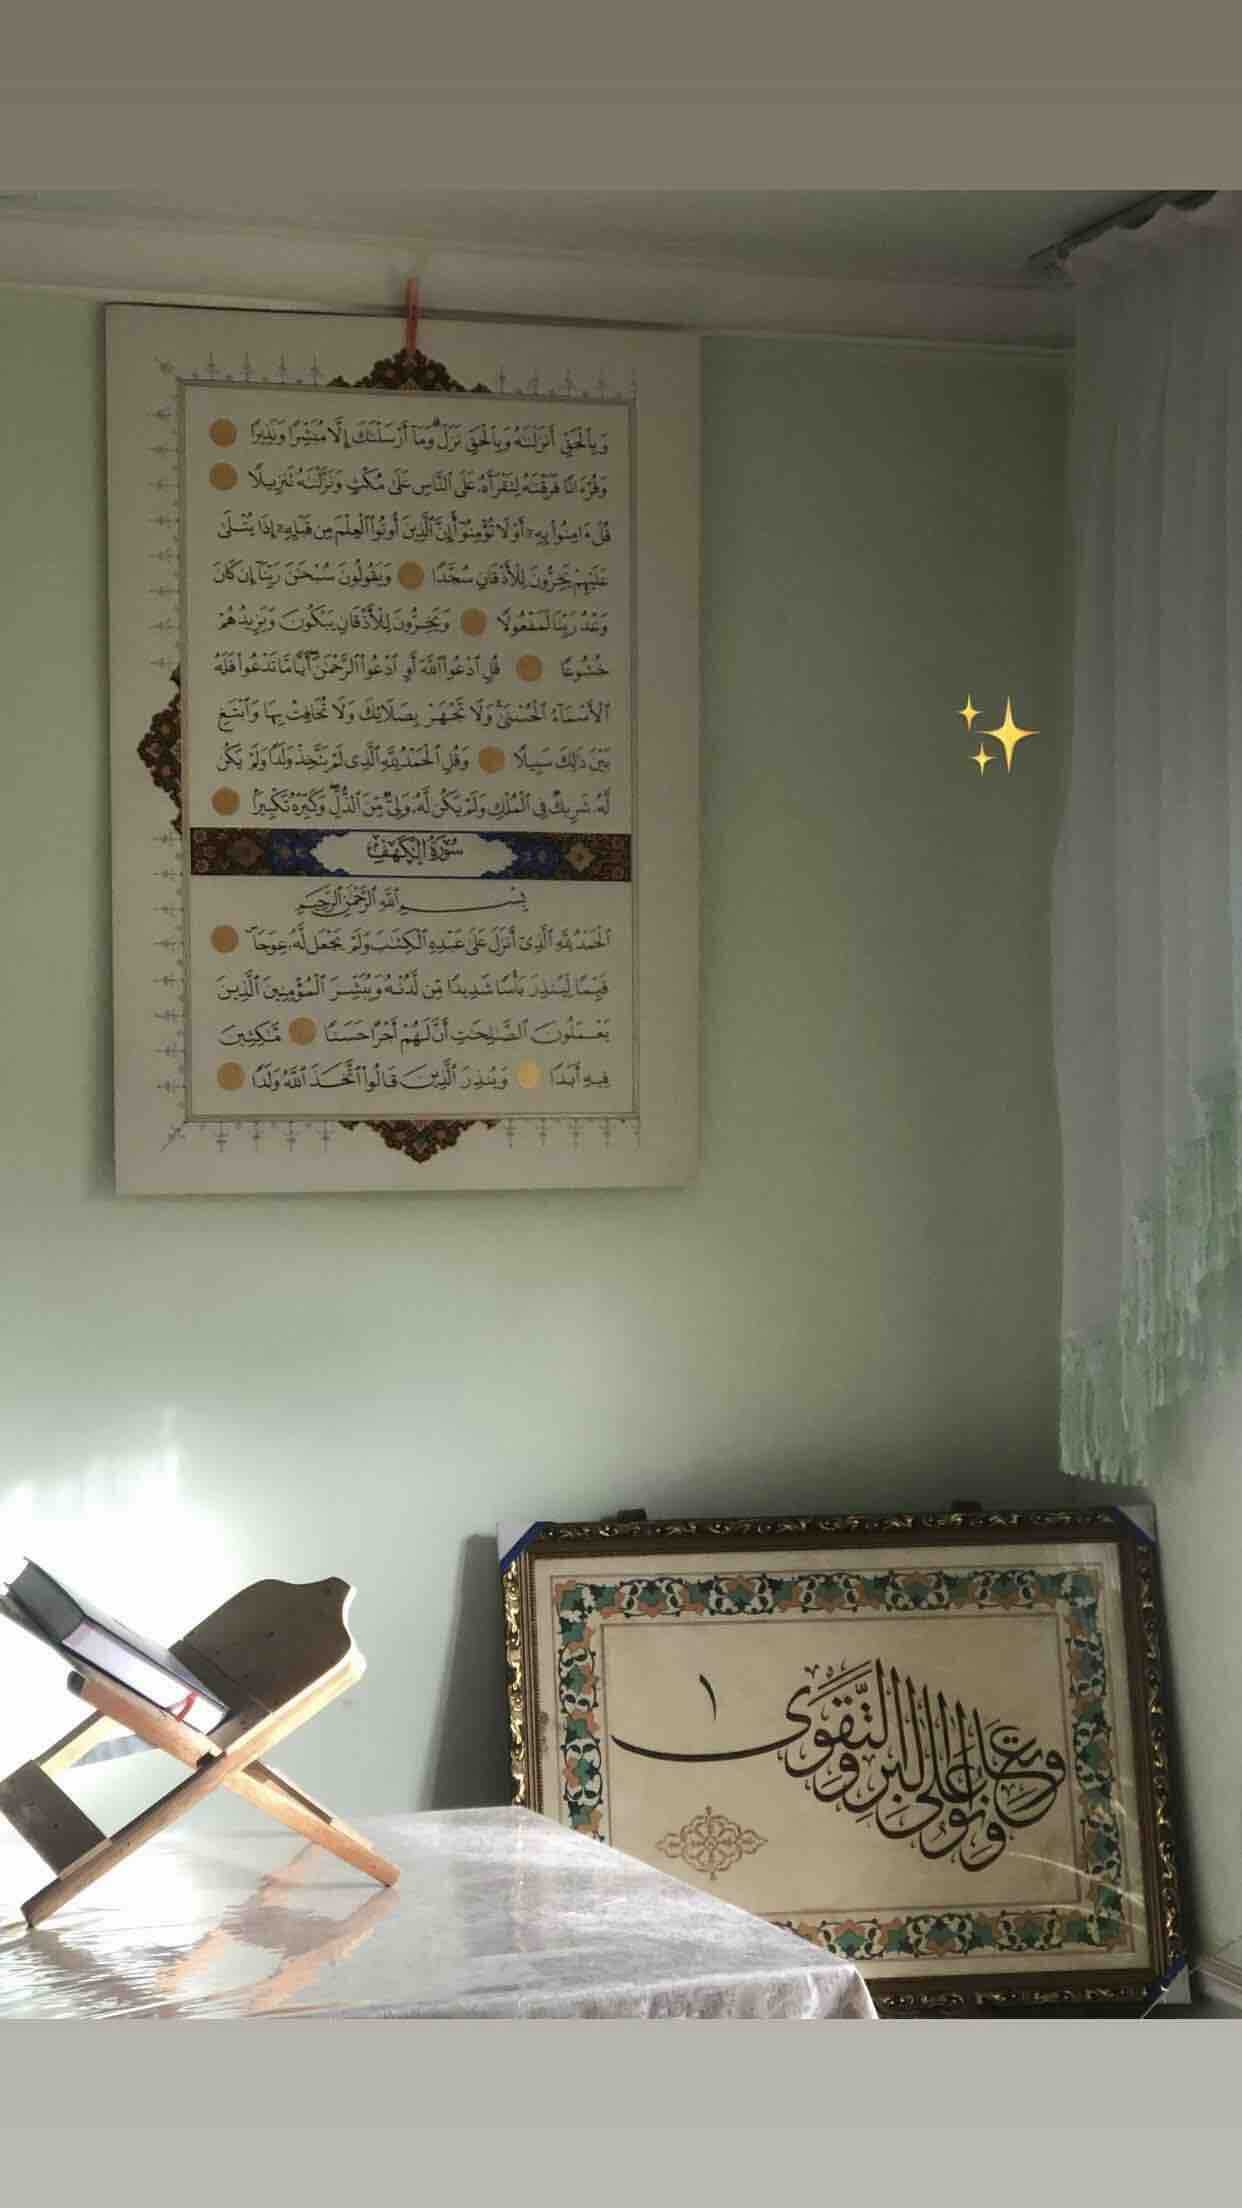 وَبِٱلْحَقِّ أَنزَلْنَٰهُ وَبِٱلْحَقِّ نَزَلَ ۗ وَمَآ أَرْسَلْنَٰكَ إِلَّا مُبَشِّرًا وَنَذِيرًا
وَقُرْءَانًا فَرَقْنَٰهُ لِتَقْرَأَهُۥ عَلَى ٱلنَّاسِ عَلَىٰ مُكْثٍ وَنَزَّلْنَٰهُ تَنزِيلًا
قُلْ ءَامِنُوا۟ بِهِۦٓ أَوْ لَا تُؤْمِنُوٓا۟ إِنَّ ٱلَّذِينَ أُوتُوا۟ ٱلْعِلْمَ مِن قَبْلِهِۦٓ إِذَا يُتْلَىٰ
عَلَيْهِمْ يَخِرُّونَ لِلْأَذْقَانِ سُجَّدًا وَيَقُولُونَ سُبْحَٰنَ رَبِّنَآ إِن كَانَ
وَعْدُ رَبِّنَا لَمَفْعُولًا وَيَخِرُّونَ لِلْأَذْقَانِ يَبْكُونَ وَيَزِيدُهُمْ
خُشُوعًا قُلِ ٱدْعُوا۟ ٱللَّهَ أَوِ ٱدْعُوا۟ ٱلرَّحْمَٰنَ ۖ أَيًّا مَّا تَدْعُوا۟ فَلَهُ
ٱلْأَسْمَآءُ ٱلْحُسْنَىٰ ۚ وَلَا تَجْهَرْ بِصَلَاتِكَ وَلَا تُخَافِتْ بِهَا وَٱبْتَغِ
بَيْنَ ذَٰلِكَ سَبِيلًا وَقُلِ ٱلْحَمْدُ لِلَّهِ ٱلَّذِى لَمْ يَتَّخِذْ وَلَدًا وَلَمْ يَكُن
لَّهُۥ شَرِيكٌ فِى ٱلْمُلْكِ وَلَمْ يَكُن لَّهُۥ وَلِىٌّ مِّنَ ٱلذُّلِّ ۖ وَكَبِّرْهُ تَكْبِيرًۢا
سُورَةُ الْكَهْفِ
بِسْمِ ٱللَّهِ ٱلرَّحْمَٰنِ ٱلرَّحِيمِ
ٱلْحَمْدُ لِلَّهِ ٱلَّذِىٓ أَنزَلَ عَلَىٰ عَبْدِهِ ٱلْكِتَٰبَ وَلَمْ يَجْعَل لَّهُۥ عِوَجَا ۜ
قَيِّمًا لِّيُنذِرَ بَأْسًا شَدِيدًا مِّن لَّدُنْهُ وَيُبَشِّرَ ٱلْمُؤْمِنِينَ ٱلَّذِينَ
يَعْمَلُونَ ٱلصَّٰلِحَٰتِ أَنَّ لَهُمْ أَجْرًا حَسَنًا مَّٰكِثِينَ
فِيهِ أَبَدًا وَيُنذِرَ ٱلَّذِينَ قَالُوا۟ ٱتَّخَذَ ٱللَّهُ وَلَدًا
وَتَعَاوَنُوا عَلَى الْبِرِّ وَالتَّقْوَى